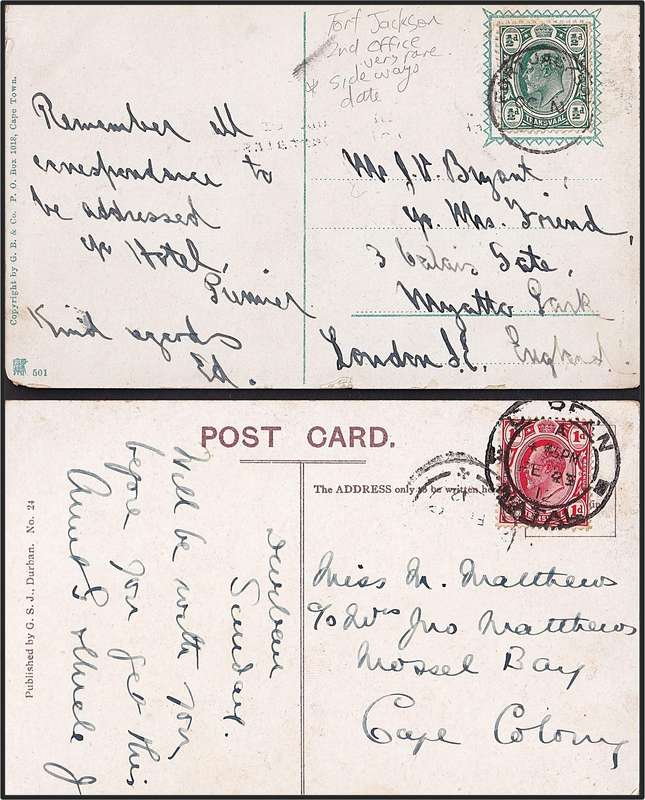 Copyright by G. B. & Co. P. O. Box 1018, Cape Town.
501
Fort Jackson
2nd Office
very rare.
* Sideways
date
½d ½d
½d ½d
TRANSVAAL
Remember all
correspondance to
be addressed
c/o Hotel,
Premier
Kind regards
Ed.
Mr J.V. Bryant,
c/o Mrs. Friend,
3 Calais Gate,
Myatts Park
London S.E, England.
POST CARD.
The ADDRESS only to be written he
Published by G. S. J., Durban. No. 24
1d 1d
1d
NATAL
FE 23
Durban
Sunday.
Will be with you
before you get this
Aunt & Uncle J
Miss M. Matthews
c/o Mrs Jno Matthews
Mossel Bay
Cape Colony